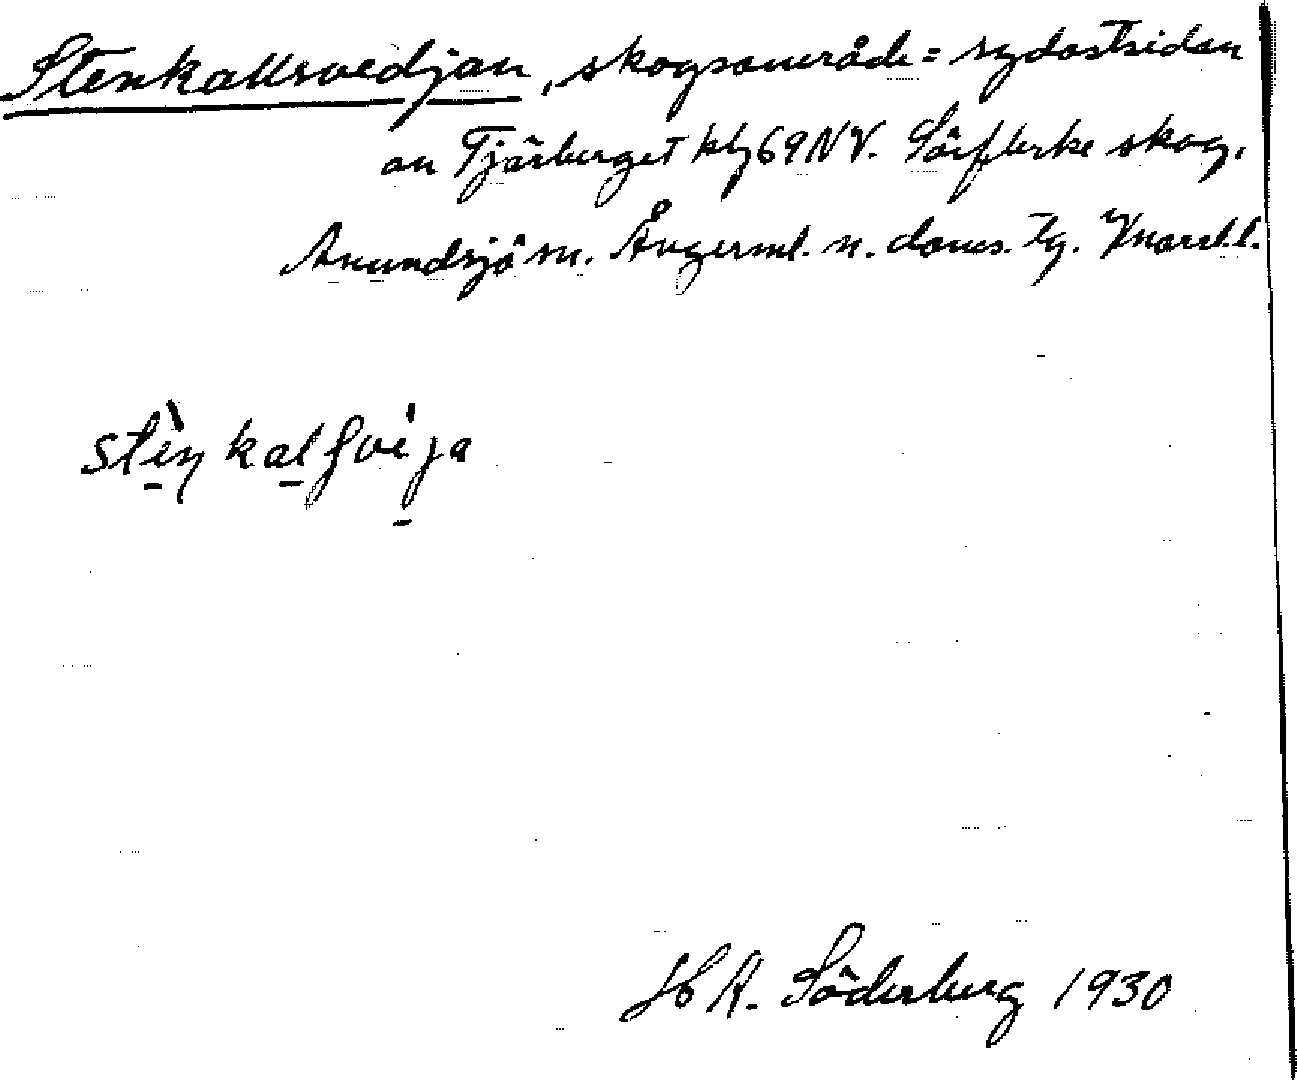 Stenkallsvedjan, skogsområde = sydostsidan
av Tjärberget kbg 69 NV. Sörflärke skog,
Anundsjö sn. Ångerml. n. doms. tg. Vnorrl. l.
stèŋkalʃvẹ̀ja
H A. Söderberg 1930